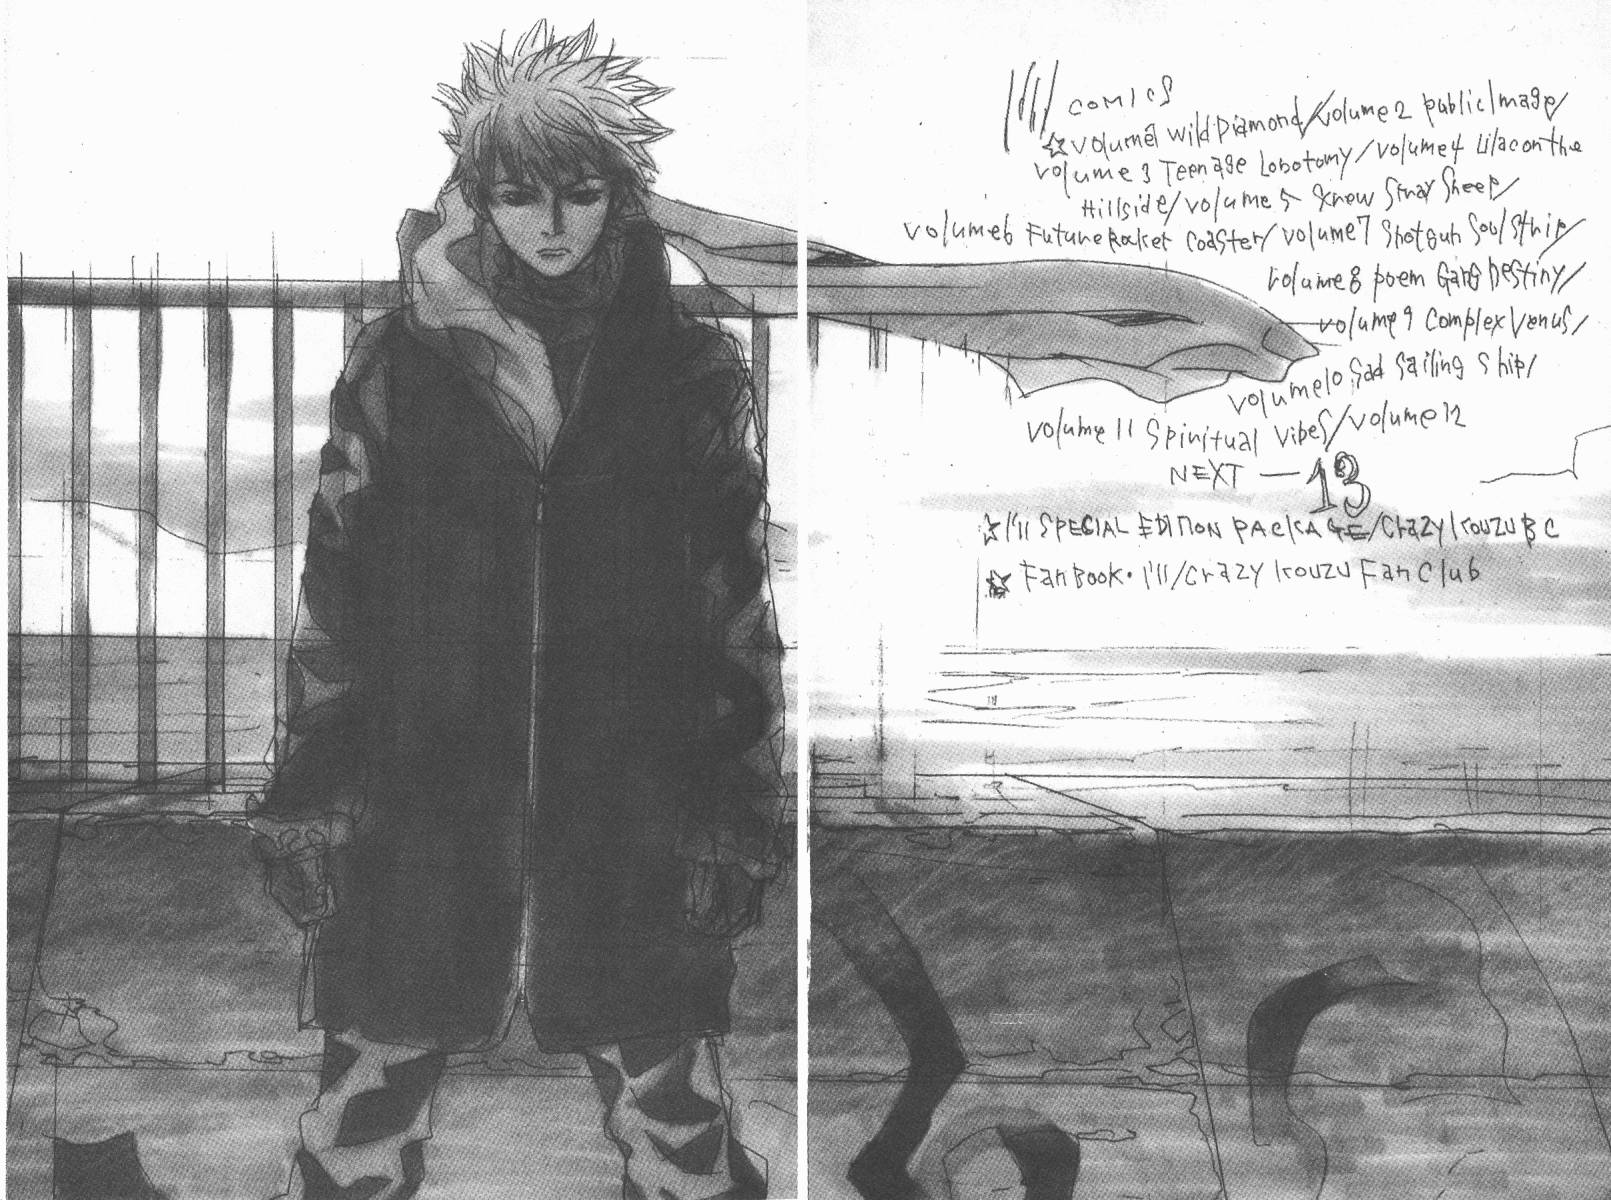 I'll COMICS
☆volume1 wild Diamond/volume2 public Image/
volume3 Teenage Lobotomy/volume4 Lilac on the
Hillside/volume5 knew Stray Sheep/
volume6 Future Rocket Coaster/volume7 Shotgun Soul Strip/
volume8 poem Gang Destiny/
volume9 Complex Venus/
volume10 Sad Sailing Ship/
volume11 Spiritual Vibes/volume12
NEXT — 13
☆I'll SPECIAL EDITION PACKAGE/Crazy kouzu BC
☆ Fan Book・I'll/Crazy kouzu Fan Club